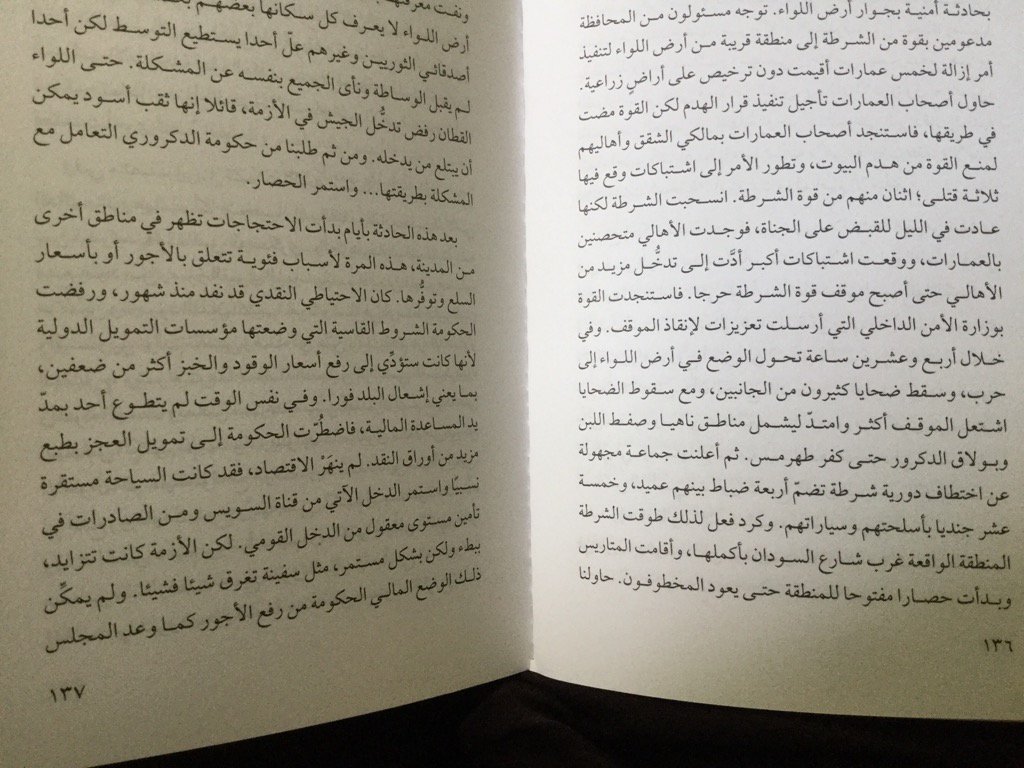 بحادثة أمنية بجوار أرض اللواء. توجه مسئولون من المحافظة
مدعومين بقوة من الشرطة إلى منطقة قريبة من أرض اللواء لتنفيذ
أمر إزالة لخمس عمارات أقيمت دون ترخيص على أراضٍ زراعية.
حاول أصحاب العمارات تأجيل تنفيذ قرار الهدم لكن القوة مضت
في طريقها، فاستنجد أصحاب العمارات بمالكي الشقق وأهاليهم
لمنع القوة من هدم البيوت، وتطور الأمر إلى اشتباكات وقع فيها
ثلاثة قتلى؛ اثنان منهم من قوة الشرطة. انسحبت الشرطة لكنها
عادت في الليل للقبض على الجناة، فوجدت الأهالي متحصنين
بالعمارات، ووقعت اشتباكات أكبر أدَّت إلى تدخُّل مزيد من
الأهالي حتى أصبح موقف قوة الشرطة حرجا. فاستنجدت القوة
بوزارة الأمن الداخلي التي أرسلت تعزيزات لإنقاذ الموقف. وفي
خلال أربع وعشرين ساعة تحول الوضع في أرض اللواء إلى
حرب، وسقط ضحايا كثيرون من الجانبين، ومع سقوط الضحايا
اشتعل الموقف أكثر وامتدّ ليشمل مناطق ناهيا وصفط اللبن
وبولاق الدكرور حتى كفر طهرمس. ثم أعلنت جماعة مجهولة
عن اختطاف دورية شرطة تضمّ أربعة ضباط بينهم عميد، وخمسة
عشر جنديا بأسلحتهم وسياراتهم. وكرد فعل لذلك طوقت الشرطة
المنطقة الواقعة غرب شارع السودان بأكملها، وأقامت المتاريس
وبدأت حصارا مفتوحا للمنطقة حتى يعود المخطوفون. حاولنا
١٣٦
ونفت
أرض اللواء لا يعرف كل سكانها بعضهم
أصدقائي الثوريين وغيرهم علّ أحدا يستطيع التوسط لكن أحدا
لم يقبل الوساطة ونأى الجميع بنفسه عن المشكلة. حتى اللواء
القطان رفض تدخُّل الجيش في الأزمة، قائلا إنها ثقب أسود يمكن
أن يبتلع من يدخله. ومن ثم طلبنا من حكومة الدكروري التعامل مع
المشكلة بطريقتها... واستمر الحصار.
بعد هذه الحادثة بأيام بدأت الاحتجاجات تظهر في مناطق أخرى
من المدينة، هذه المرة لأسباب فئوية تتعلق بالأجور أو بأسعار
السلع وتوفُّرها. كان الاحتياطي النقدي قد نفد منذ شهور، ورفضت
الحكومة الشروط القاسية التي وضعتها مؤسسات التمويل الدولية
لأنها كانت ستؤدِّي إلى رفع أسعار الوقود والخبز أكثر من ضعفين،
بما يعني إشعال البلد فورا. وفي نفس الوقت لم يتطوع أحد بمدّ
يد المساعدة المالية، فاضطُرَّت الحكومة إلى تمويل العجز بطبع
مزيد من أوراق النقد. لم ينهَرْ الاقتصاد، فقد كانت السياحة مستقرة
نسبيًا واستمر الدخل الآتي من قناة السويس ومن الصادرات في
تأمين مستوى معقول من الدخل القومي. لكن الأزمة كانت تتزايد،
ببطء ولكن بشكل مستمر، مثل سفينة تغرق شيئا فشيئا. ولم يمكِّن
ذلك الوضع المالي الحكومة من رفع الأجور كما وعد المجلس
١٣٧